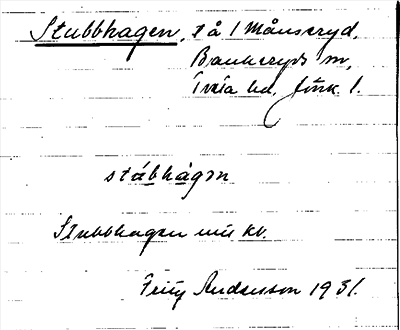 Stubbhagen, t å 1 Månseryd,
Bankeryds sn,
Tveta hd, Jönk. l.
stábhàgɜn
Stubbhagen uus kv.
Fritz Andersson 1931.